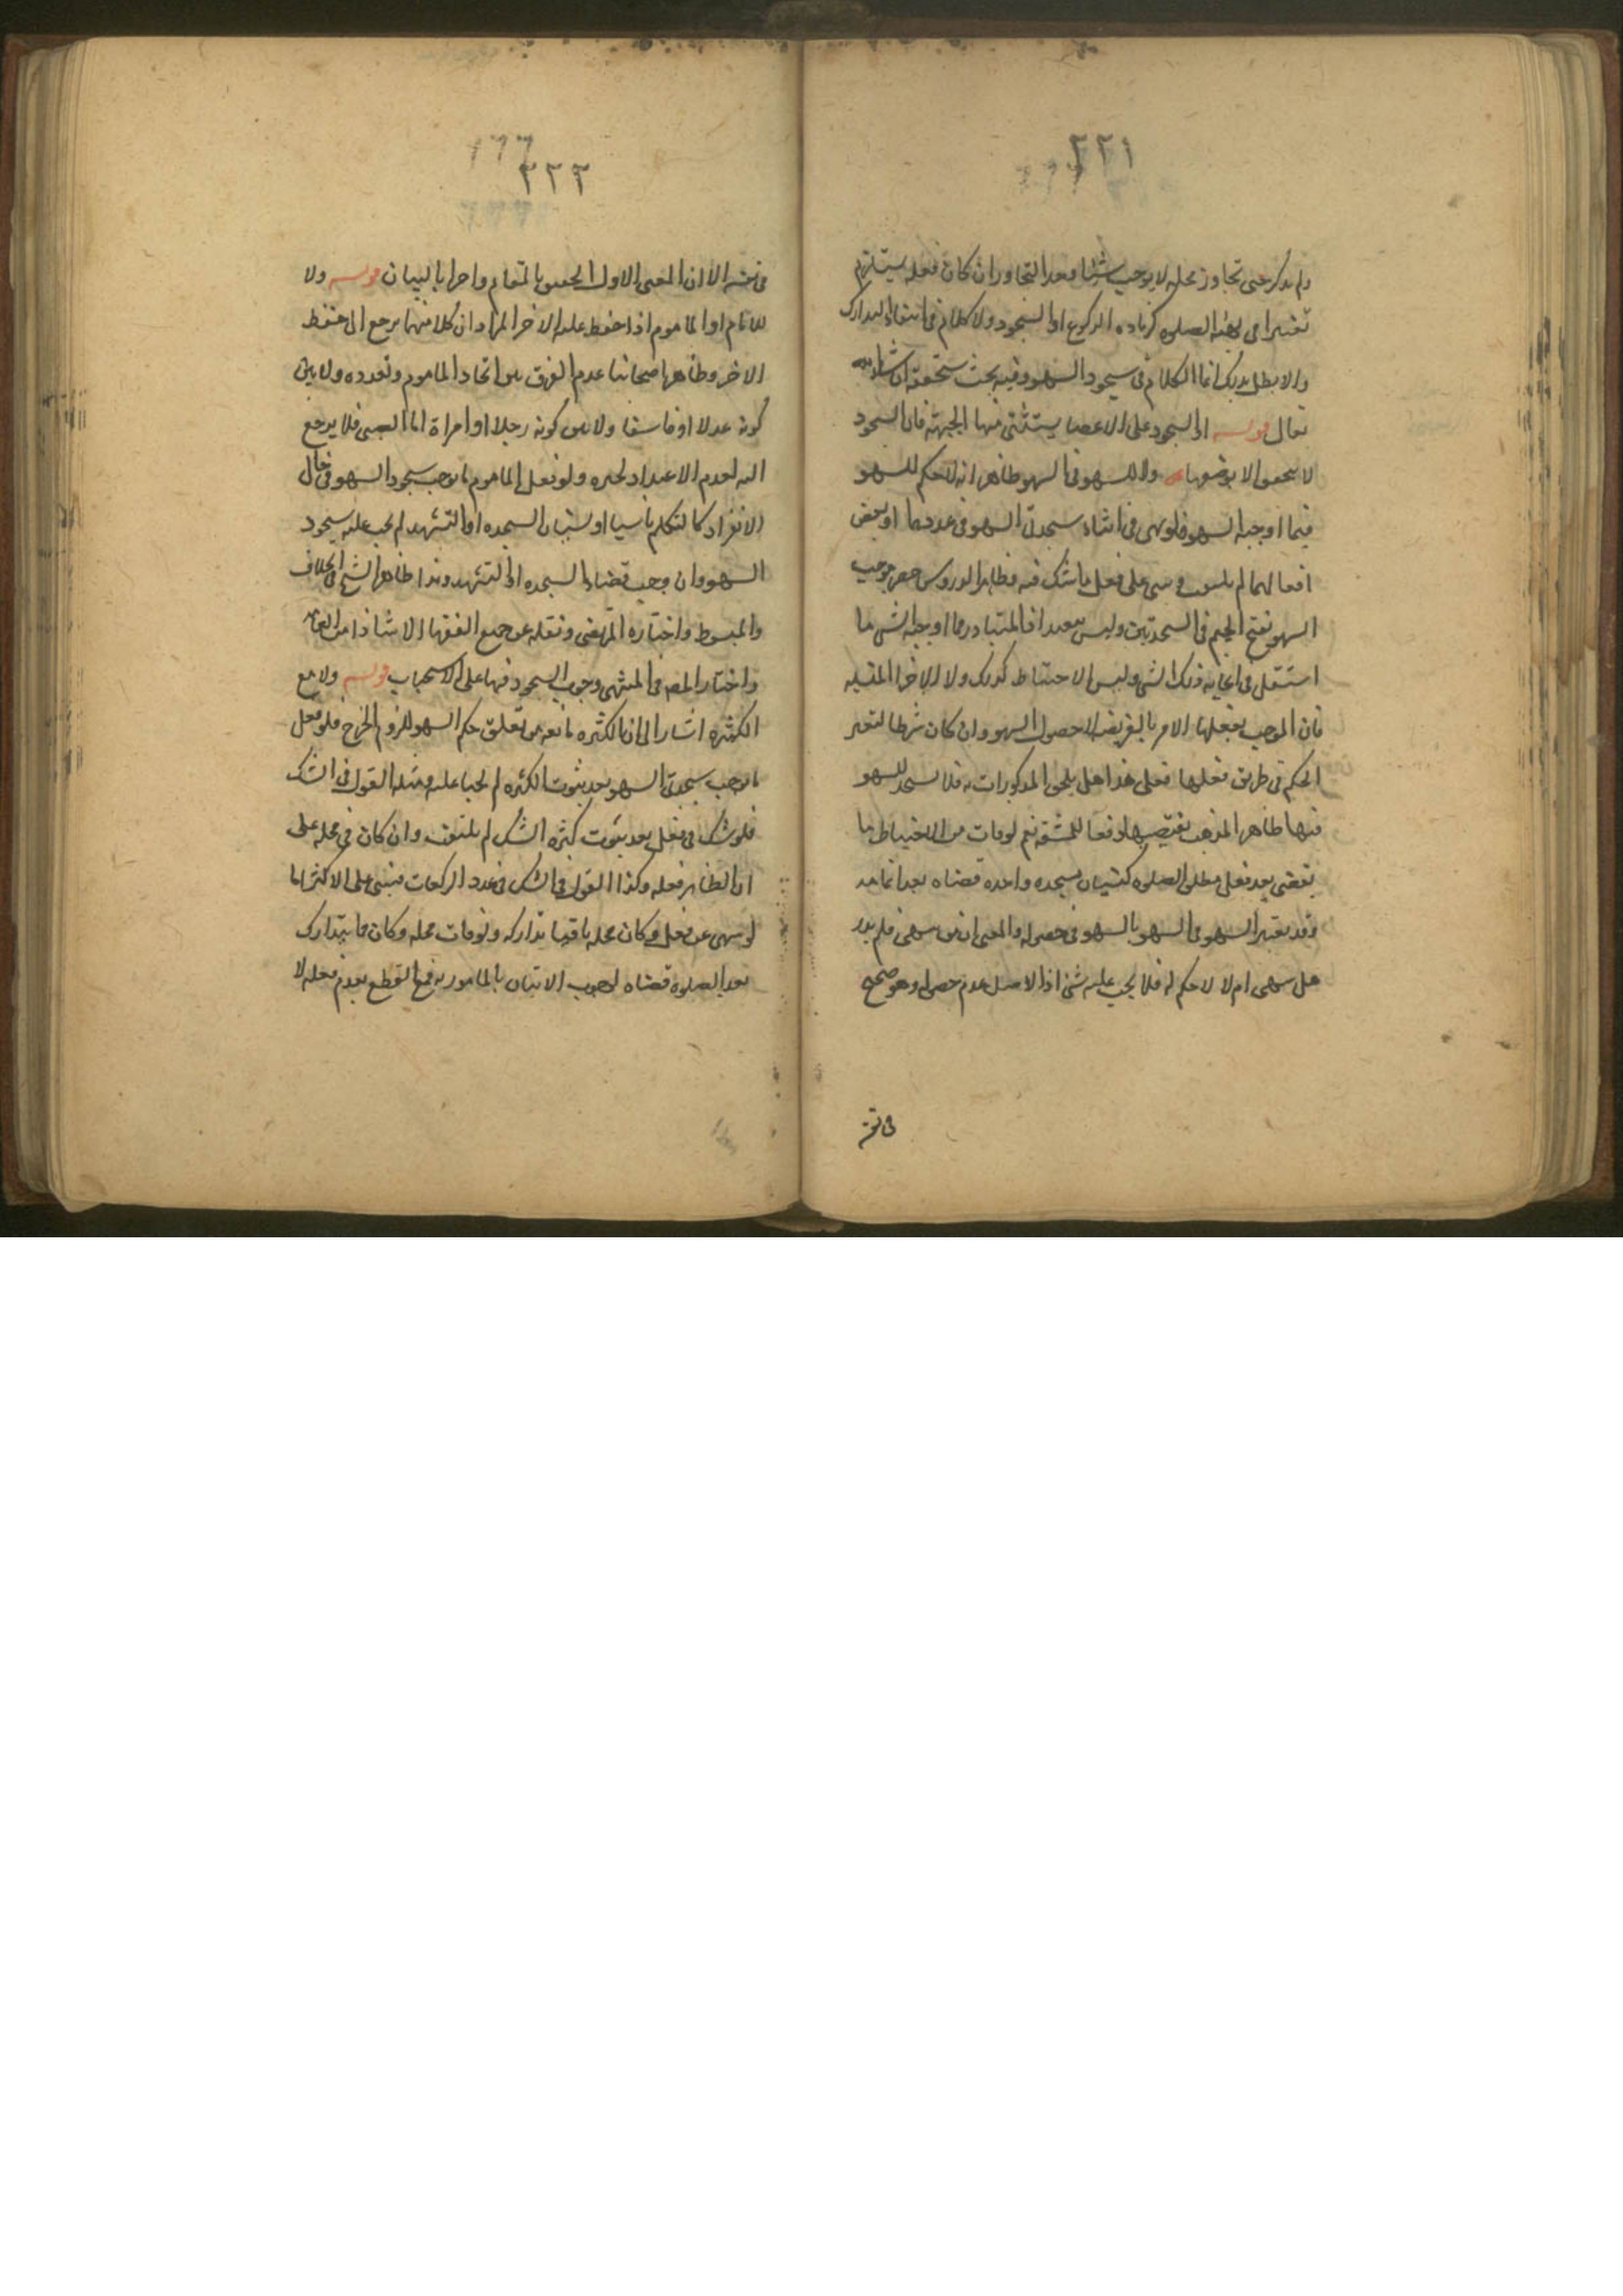 ٢٢١
ولم يذكر حتى تجاوز محله لا يوجب شيئا وبعد التجاوز ان كان فعله يستلزم
تغييرا في هيئة الصلوه كزياده الركوع او السجود ولا كلام في انتفاء التدارك
والا بطل بذلك انما الكلام في سجود السهو وفيه بحث ستحققه ان شاء الله
تعالى قوله او السجود على الاعضا يستثنى منها الجبهة فان السجود
لا يتحقق الا بوضعها ولا للسهو في السهو ظاهره انه لا حكم للسهو
فيما اوجبه السهو فلو سهى في اثناء سجدتي السهو في عددهما او بعض
افعالهما لم يلتفت وبنى على فعل ما شك فيه وظاهر الدروس حصر موجب
السهو بفتح الجيم في السجدتين وليس ببعيد اذ المتبادر مما اوجبه الشي ما
استقل في ايجابه ذلك الشي وليس الاحتياط كذلك ولا الاخرا المقيه
فان الموجب بفعلها الامر بالفريضه لا حصول السهو وان كان شرطا لتغير
الحكم في طريق فعلها فعلى هذا هل يلحق المذكورات به فلا يسجد للسهو
فيها ظاهر المذهب يقتضيه دفعا للمشقه نعم لو فات من الاحتياط ما
يقضى بعد فعل مطلق الصلوه كنسيان سجده واحده قضاه بعد اتمامه
وقد يعتبر السهو في السهو بالسهو في حصوله والمعنى ان من سهى فلم يدر
هل سهى ام لا لا حكم له فلا يجب عليه شئ اذ الاصل عدم حصوله وهو صحيح
في نفسه
١٦٦
٢٢٢
في نفسه الا ان المعنى الاول اليق بالمقام واحرا بالبيان قوله ولا
للامام او الماموم اذا حفظ عليه الاخر المراد ان كلا منهما يرجع الى حفظ
الاخر وظاهر اصحابنا عدم الفرق بين اتحاد الماموم وتعدده ولا بين
كونه عدلا او فاسقا ولا بين كونه رجلا او امراة اما الصبي فلا يرجع
اليه لعدم الاعتداد بخبره ولو فعل الماموم ما يوجب سجود السهو في حال
الانفراد كالتكلم ناسيا او نسيان السجده او التشهد لم يجب عليه سجود
السهو وان وجب قضاء السجده او التشهد وهذا ظاهر الشيخ في الخلاف
والمبسوط واختاره المرتضى ونقله عن جميع الفقها الا شاذا من العامه
واختار المصـ في المنتهى وجوب السجود فيها على الاستحباب قوله ولا مع
الكثره اشار الى ان الكثره مانعه من تعلق حكم السهو للزوم الحرج فلو فعل
ما يوجب سجدتي السهو بعد ثبوت الكثره لم يجبا عليه ومثله القول في الشك
فلو شك في فعل بعد ثبوت كثره الشك لم يلتفت وان كان في محله على
ان الظاهر فعله وكذا القول في الشك في عدد الركعات فيبنى على الاكثر اما
لو سهى عن فعل وكان محله باقيا تداركه ولو فات محله وكان مما يتدارك
بعد الصلوه قضاه لوجوب الاتيان بالمامور به مع القطع بعدم فعله لا